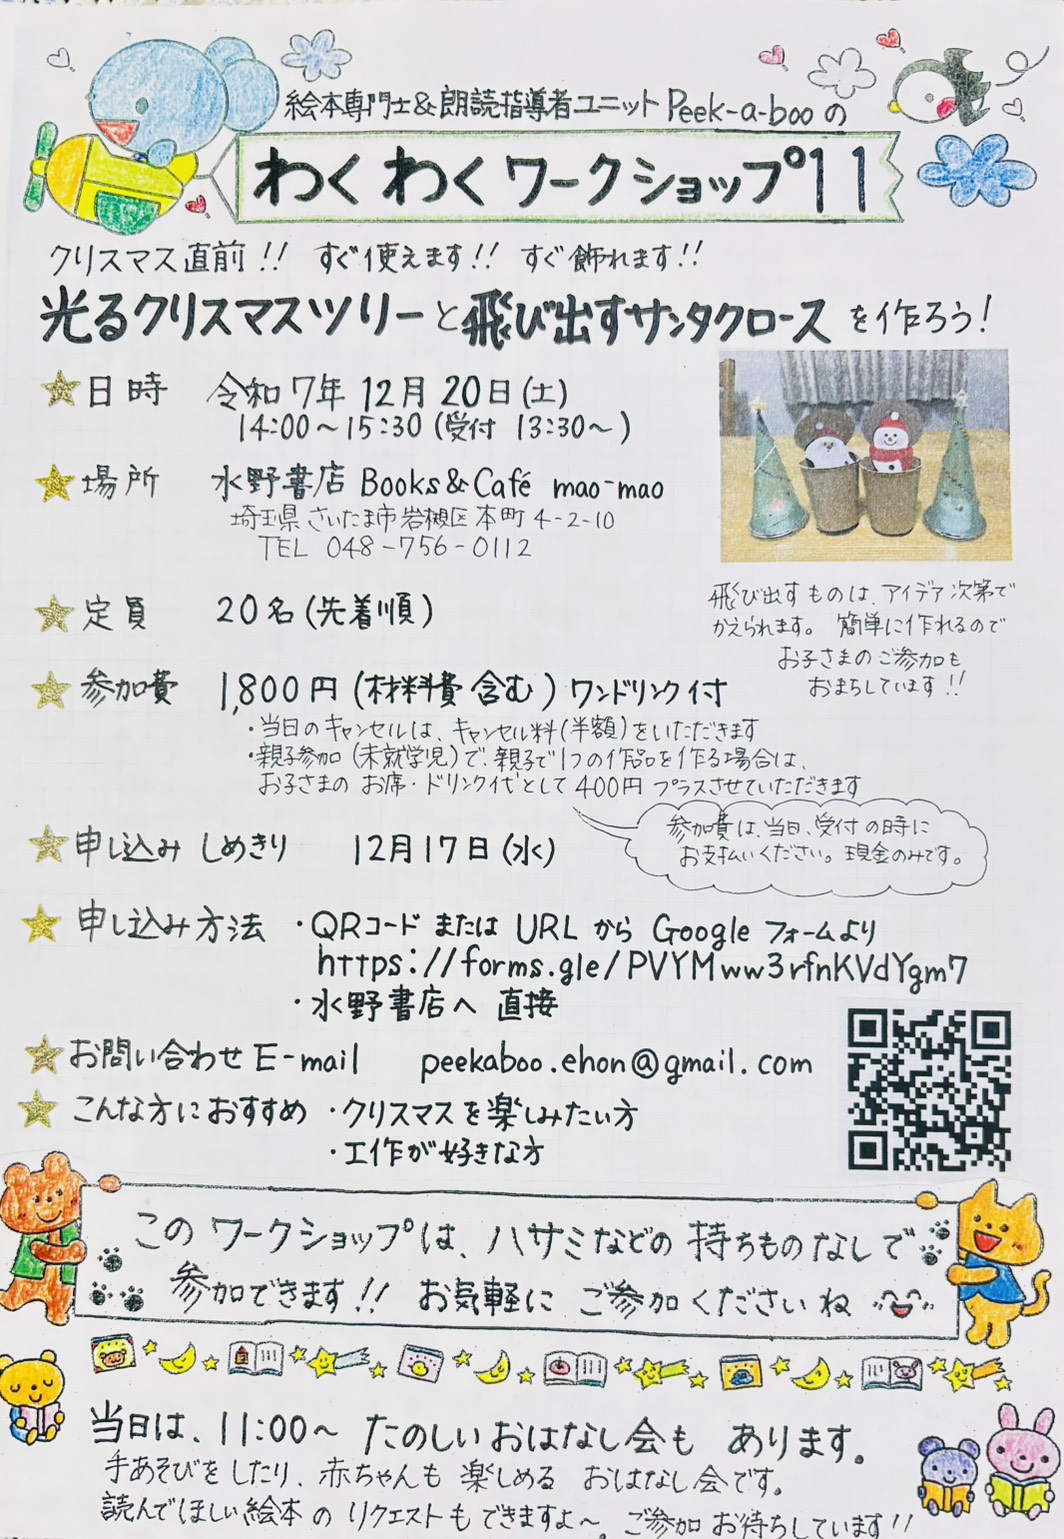 絵本専門士&朗読指導者ユニット Peek-a-boo の
わくわくワークショップ11
クリスマス直前!! すぐ使えます!! すぐ飾れます!!
光るクリスマスツリーと飛び出すサンタクロースを作ろう!
★日時 令和7年12月20日(土)
14:00~15:30(受付 13:30~)
★場所 水野書店 Books&Café mao-mao
埼玉県さいたま市岩槻区本町4-2-10
TEL 048-756-0112
飛び出すものは、アイデア次第で
かえられます。簡単に作れるので
お子さまのご参加も
おまちしています!!
★定員 20名(先着順)
★参加費 1,800円(材料費含む)ワンドリンク付
・当日のキャンセルは、キャンセル料(半額)をいただきます
・親子参加(未就学児)で、親子で1つの作品を作る場合は、
お子さまのお席・ドリンク代として400円プラスさせていただきます
参加費は、当日、受付の時に
お支払いください。現金のみです。
★申し込みしめきり 12月17日(水)
★申し込み方法 ・QRコードまたはURLからGoogleフォームより
https://forms.gle/PVYMww3rfnKVdYgm7
・水野書店へ直接
★お問い合わせ E-mail peekaboo.ehon@gmail.com
★こんな方におすすめ ・クリスマスを楽しみたい方
・工作が好きな方
このワークショップは、ハサミなどの持ちものなしで
参加できます!! お気軽にご参加くださいね
当日は、11:00~たのしいおはなし会もあります。
手あそびをしたり、赤ちゃんも楽しめるおはなし会です。
読んでほしい絵本のリクエストもできますよ~。ご参加お待ちしています!!